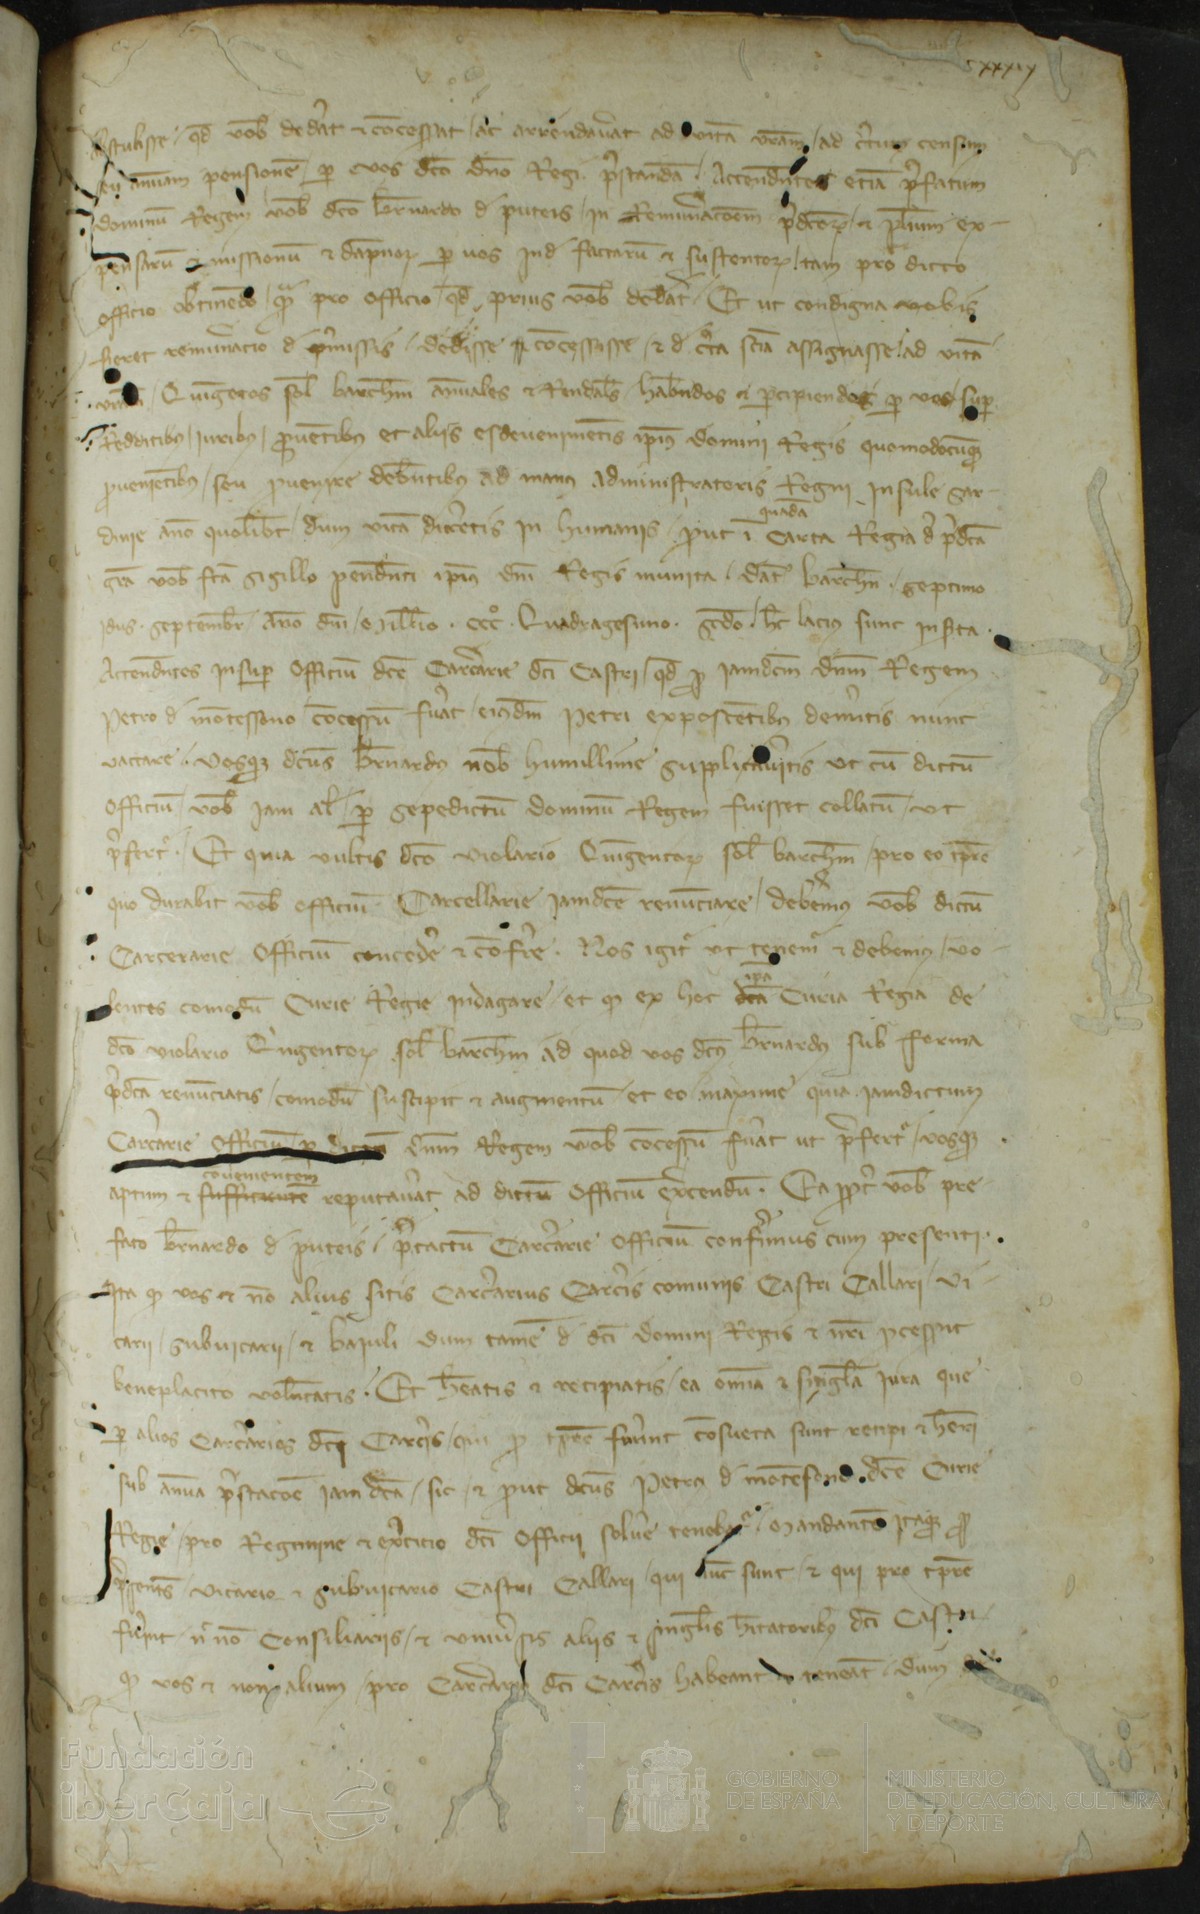 cxxxix
qd vob dedat et cocessat ac arrendavat ad vita vram ad certum censum
seu annuam pensione p vos dco dno Regi prestanda. Attendentes etia prefatum
dominu Regem vob dco Bnardo d puteis in Remunacoem pdcor et plium ex-
pensaru et missionu et dapnor p vos ind factaru et sustentor tam pro dicto
officio obtinedo qua pro officio qd prius vob dedat. Et ut condigna vobis
fieret remunacio d pmissis dedisse et cocessisse et d certa scia assignasse ad vita
vram Quigetos sol barchn annuales et Rendals habendos et pcipiendos p vos sup
Redditibus iuribus pvetibus et aliis esdevenimetis ipius domini Regis quomodocuq
pvenietibus seu pvenire debentibus ad manus administratoris Regni Insule Sar-
dinie ano quolibet dum vita ducetis in humanis put i quada carta Regia d pdcta
gra vob fca sigillo pendenti ipius dni Regis munita dat barchn septimo
idus septembr Ano dni Millio CCC Quadragesimo scdo hec lacius sunt inserta
Attendentes insup Officiu dce Carcarie dci Castri qd p iamdcm dnm Regem
Petro d motessono cocessu fuat eiusdm Petri exposcetibus demeritis nunc
vaccare vosq dcus Bnardus nob humillime supplicaveritis ut cu dictu
officiu vob iam al p sepedictu dominu Regem fuisset collatu ut
pfert. Et quia vultis dco violario Quigentor sol barchn pro eo tpre
quo durabit vob officiu Carcellarie iamdce renuciare deberemus vob dictu
Carcerarie Officiu concede et cofre. Nos igit ut tenemr et debemus vo-
lentes comodu Curie Regie indagare et q ex hoc ipa dcta Curia Regia de
dco violario Quigentor sol barchn ad quod vos dcus Bnardus sub forma
pdcta renuciatis comodu suscipit et augmentu et eo maxime quia iamdictum
Carcarie Officiu p dictu dnm Regem vob cocessu fuat ut pfert vosq
aptum et sufficiente convenientem reputavat ad dictu Officiu excendu. Ea ppt vob pre
fato Bnardo d puteis ptactu Carcarie Officiu conferimus cum presenti.
Ita q vos et no alius sitis Carcarius Carcis comunis Castri Callari vi-
carii subvicarii et baiuli dum tame d dci domini Regis et nri pcesserit
beneplacito voluntatis. Et heatis et recipiatis ea omia et singla iura que
p alios carcarios dci Carcis qui p tpre fuerunt cosueta sunt recipi et heri
sub annua pstacoe iam dcta sic et put dcus Petrus d motesono dce Curie
Regie pro Regimine et excicio dci Officii solve tenebatr. Mandantes itaq p
psentes vicario et subvicario Castri Callari qui nuc sunt et qui pro tpre
fuerint nc no Consiliariis et univsis aliis et singlis hitatoribus dci Castri
q vos et non alium pro Carcario dci Carcis habeant et teneat dum
Fundación
iberCaja
GOBIERNO
DE ESPAÑA
MINISTERIO
DE EDUCACIÓN, CULTURA
Y DEPORTE